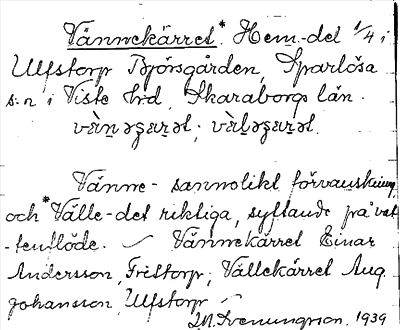 Vännekärret* Hem-del 1/4 i
Ulfstorp Björsgården, Sparlösa
s:n i Viste Hrd, Skaraborgs län.
vä̀n̲əɟæꭇət; väl̲əɟæꭇət.
Vänne- sannolikt förvanskning
och *Välle- det riktiga, syftande på vat-
tenflöde. — Vännekärret Einar
Andersson, Fristorp; Vällekärret Aug.
Johansson, Ulfstorp —
1939